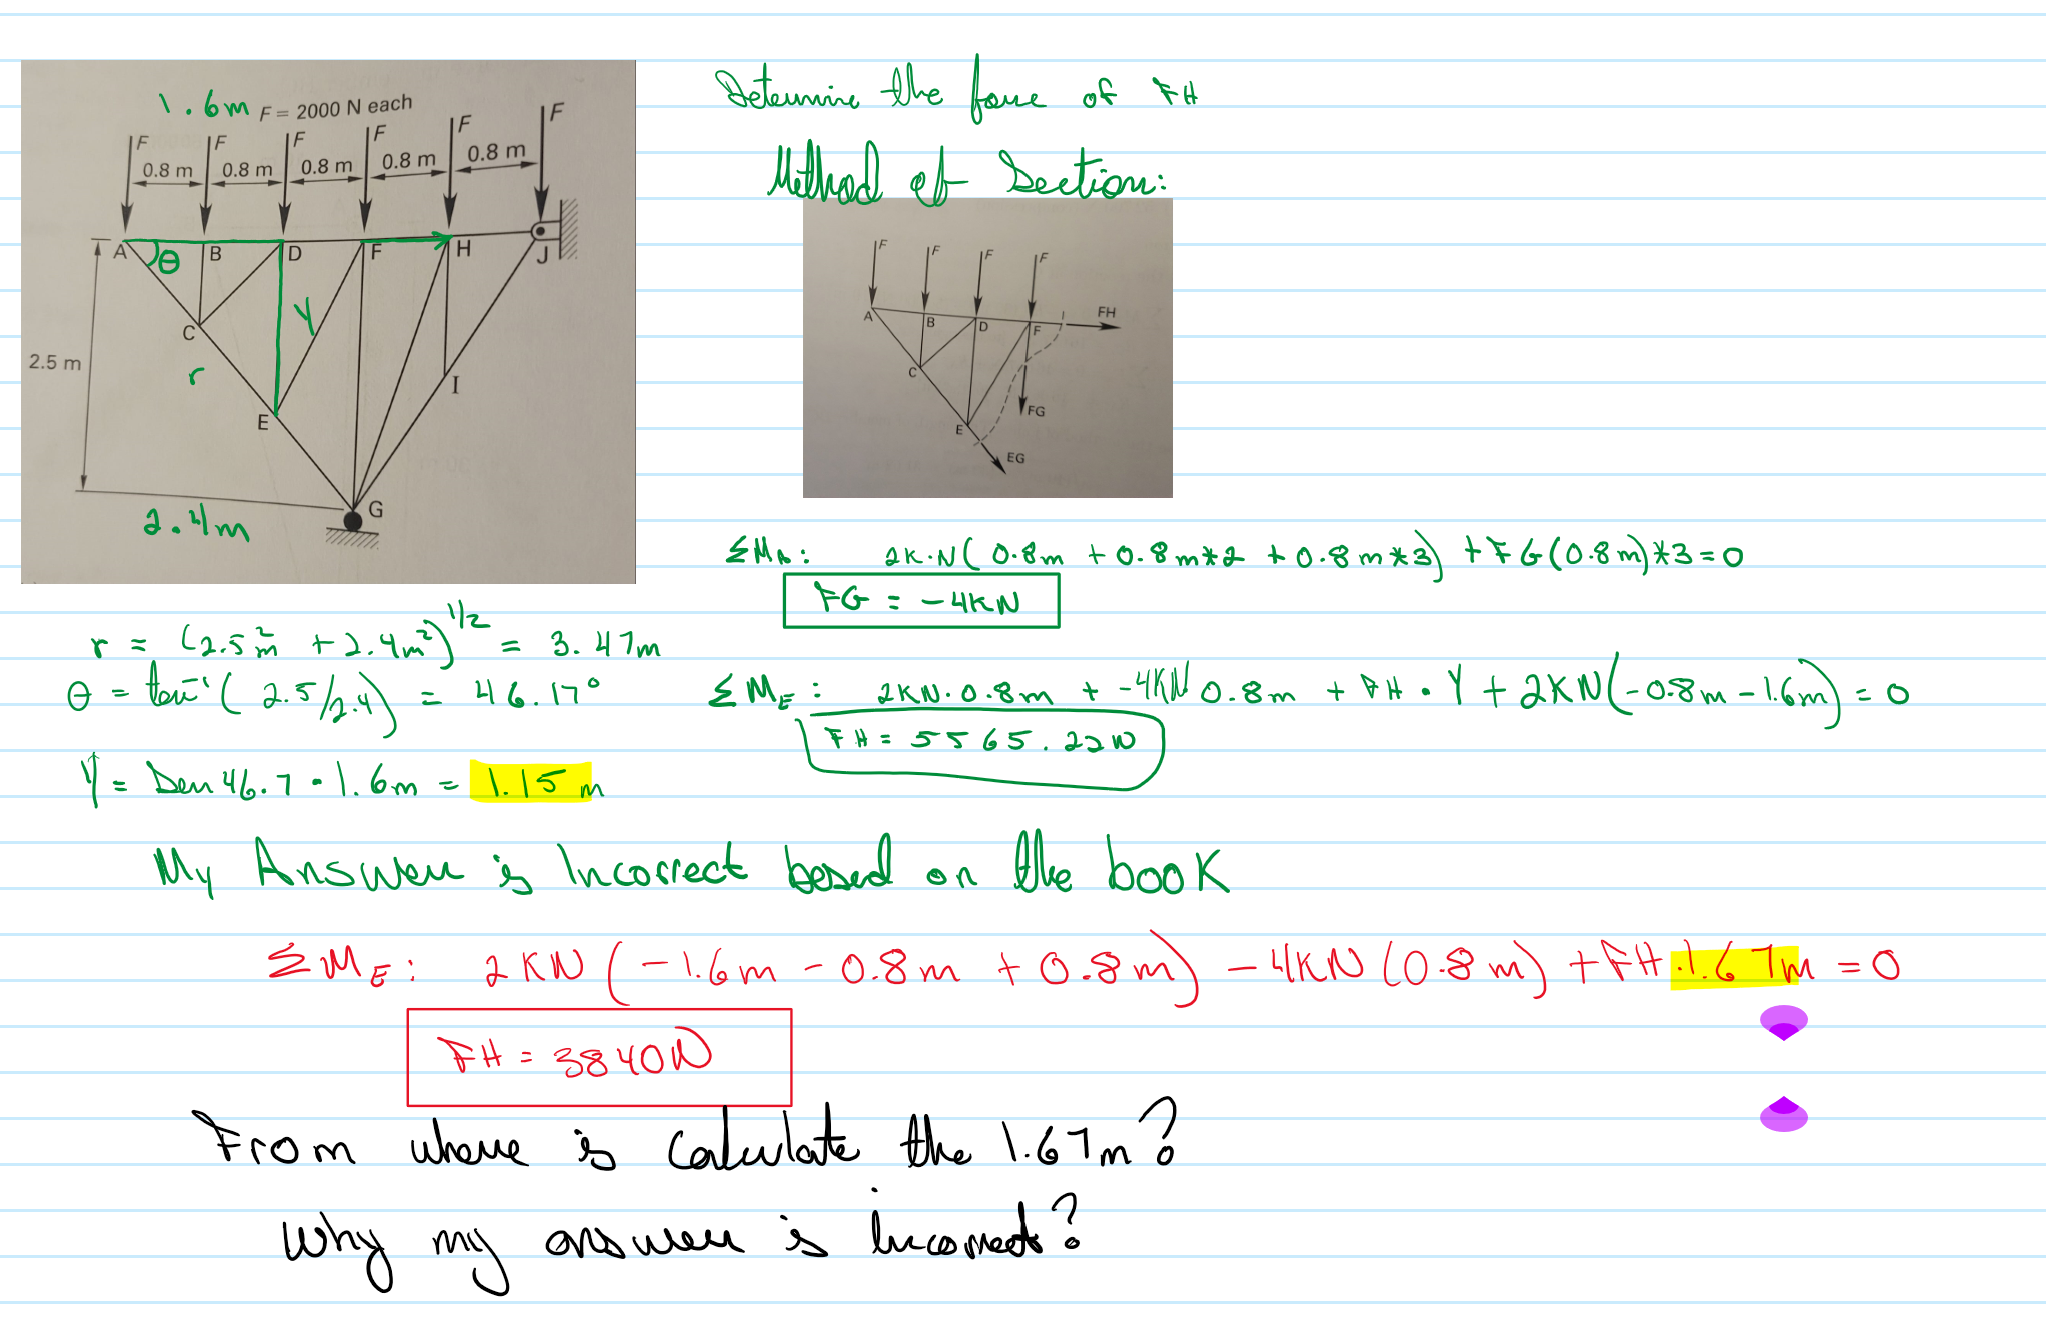 1.6m F = 2000 N each
F F F F F F
0.8 m 0.8 m 0.8 m 0.8 m 0.8 m
A θ B D F H J
C Y
2.5 m r
E I
G
2.4m
Determine the force of FH
Method of Section:
F F F F
A B D F FH
C FG
E EG
ΣMA: 2K·N(0.8m + 0.8m*2 + 0.8m*3) + FG(0.8m)*3=0
FG = -4KN
r = (2.5²m + 2.4m²)^1/2 = 3.47m
θ = tan⁻¹(2.5/2.4) = 46.17°
ΣME: 2KN·0.8m + -4KN 0.8m + FH · Y + 2KN(-0.8m - 1.6m) = 0
FH = 5565.22N
Y = Sen 46.7 · 1.6m = 1.15 m
My Answer is Incorrect based on the book
ΣME: 2KN(-1.6m - 0.8m + 0.8m) - 4KN(0.8m) + FH·1.67m = 0
FH = 3840N
From where is calculate the 1.67m?
Why my answer is Incorrect?